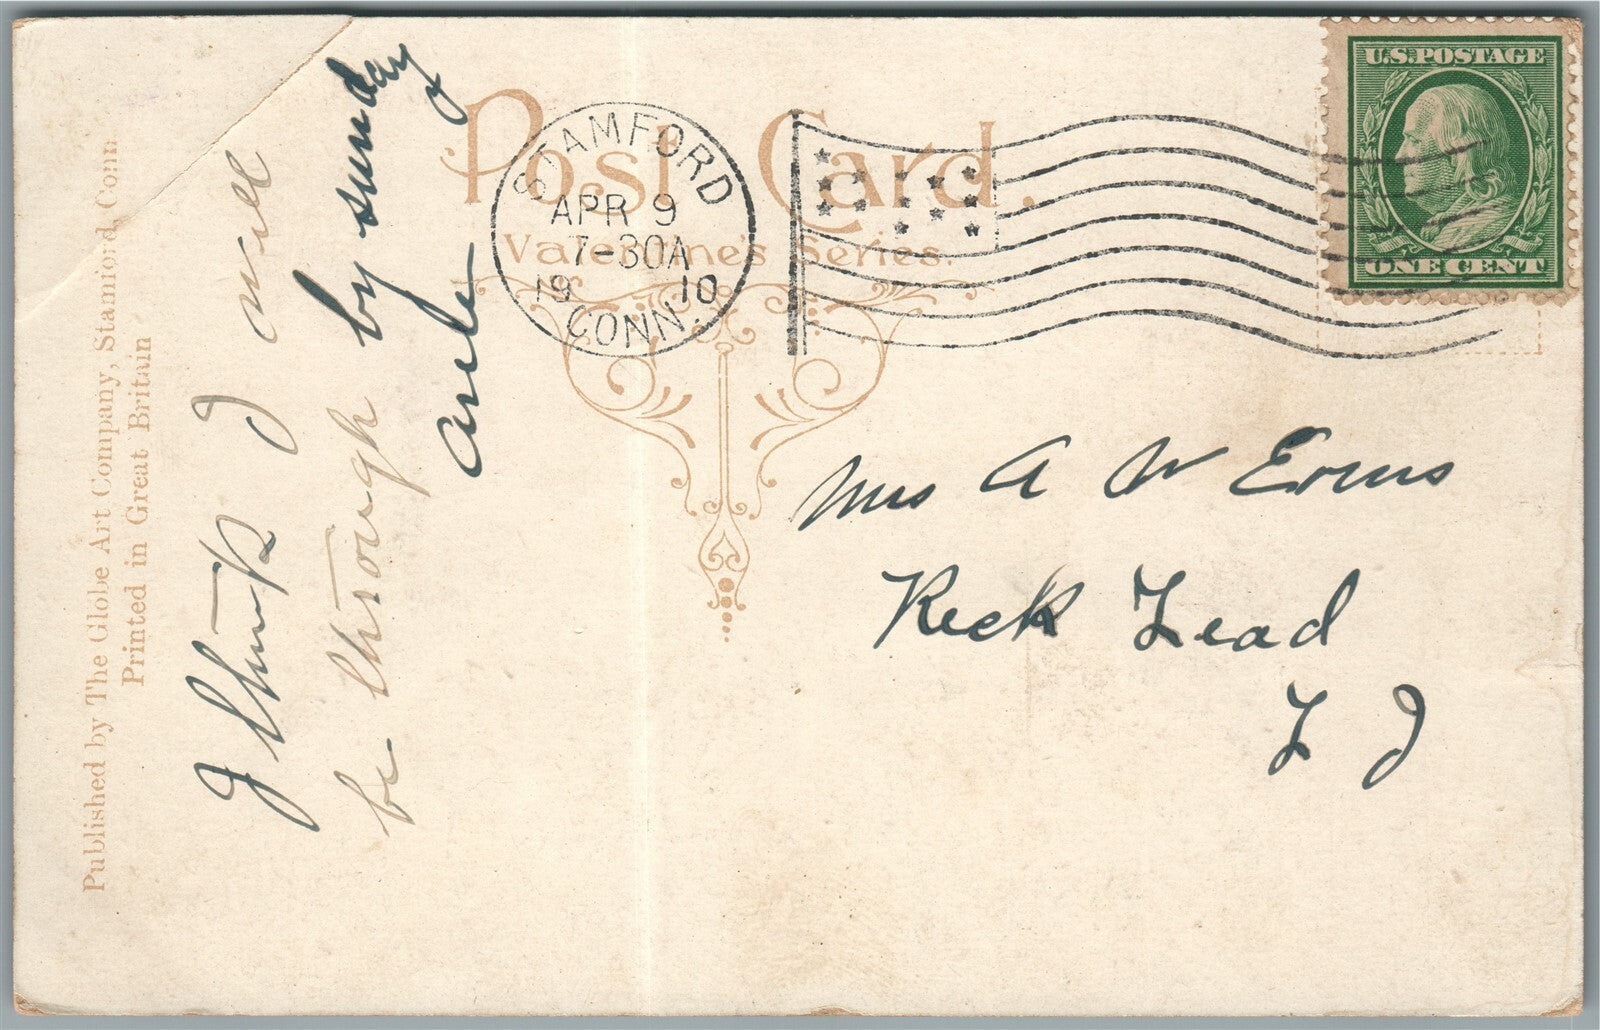 Published by The Globe Art Company, Stamford, Conn
Printed in Great Britain
I think I will
be through
by sunday
Post Card.
Valentine's Series.
STAMFORD
APR 9
7-30A
1910
CONN.
U.S. POSTAGE
ONE CENT
Mrs A W Evens
Reck Lead
L I